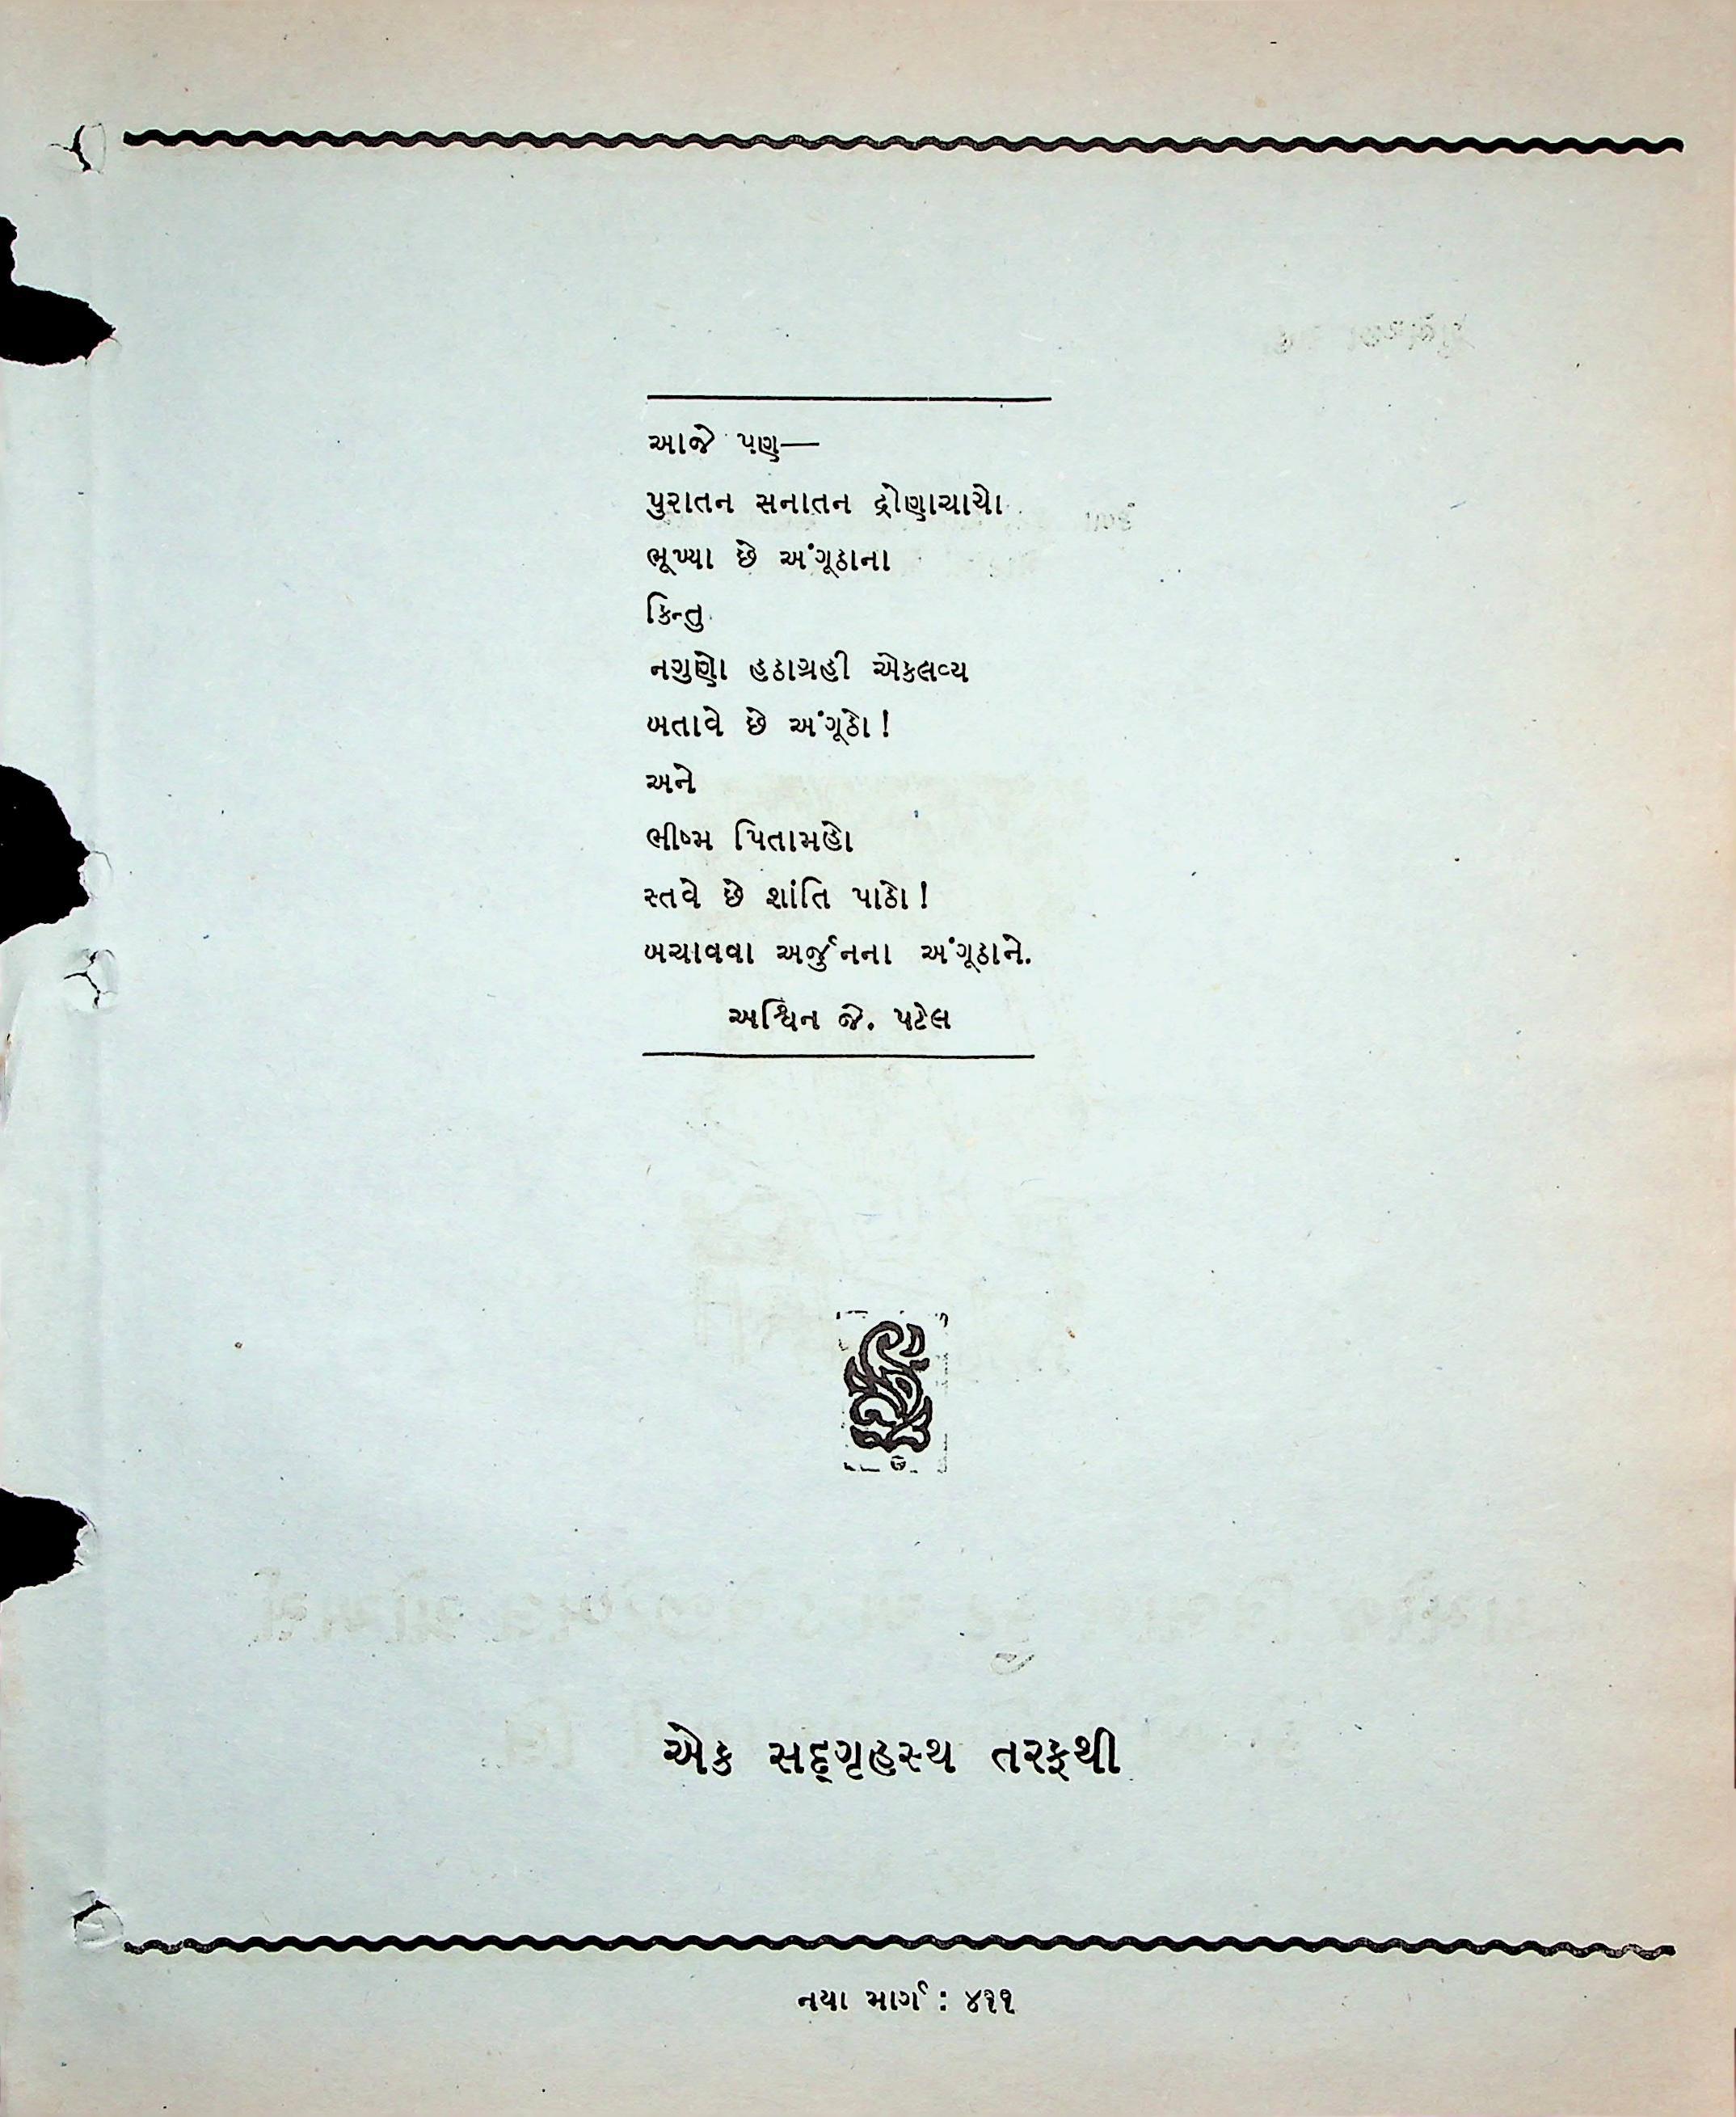 આજે પણ—
પુરાતન સનાતન દ્રોણાચાર્યો
ભૂખ્યા છે અંગૂઠાના
કિન્તુ
નગુણો હઠાગ્રહી એકલવ્ય
બતાવે છે અંગૂઠો!
અને
ભીષ્મ પિતામહો
સ્તવે છે શાંતિ પાઠો!
બચાવવા અર્જુનના અંગૂઠાને.
અશ્વિન જે. પટેલ
એક સદ્‌ગૃહસ્થ તરફથી
નયા માર્ગ : ૪૧૧